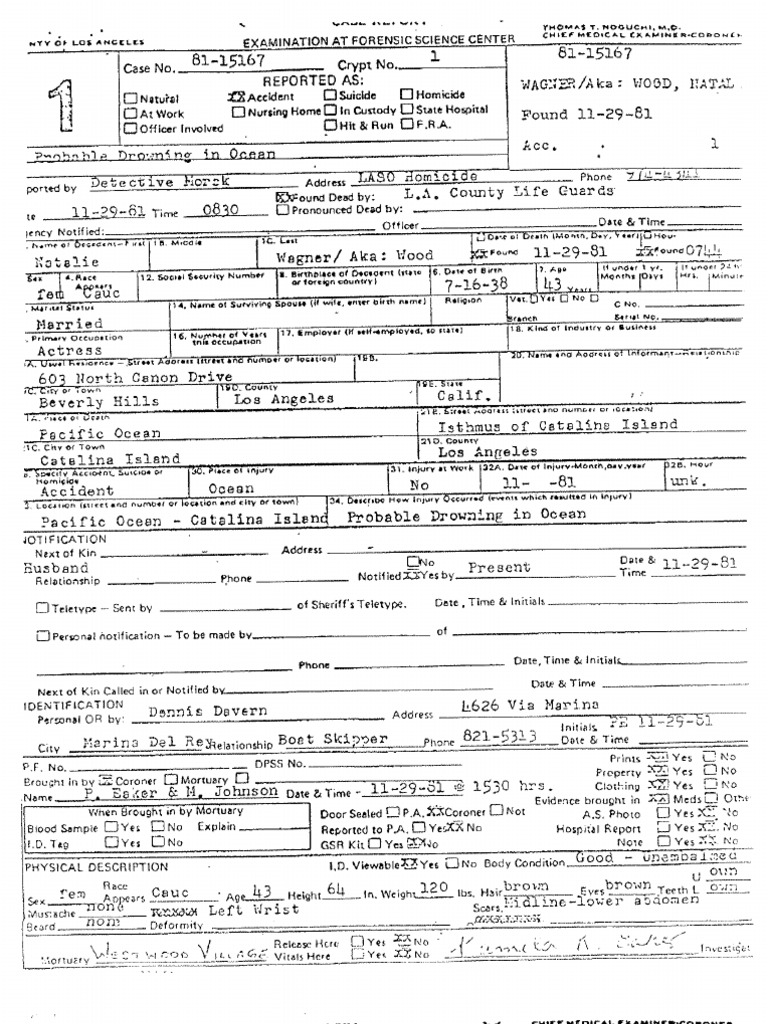 CASE REPORT
THOMAS T. NOGUCHI, M.D.
NTY OF LOS ANGELES EXAMINATION AT FORENSIC SCIENCE CENTER CHIEF MEDICAL EXAMINER-CORONER
1
Case No. 81-15167 Crypt No. 1
81-15167
REPORTED AS:
WAGNER/Aka: WOOD, NATAL
Natural XX Accident Suicide Homicide
At Work Nursing Home In Custody State Hospital
Found 11-29-81
Officer Involved Hit & Run F.R.A.
Acc. 1
Probable Drowning in Ocean
ported by Detective Address LASO Homicide Phone
XX Found Dead by: L.A. County Life Guards
te 11-29-81 Time 0830 Pronounced Dead by:
Officer Date & Time
ency Notified:
Name of Decedent-First 1B. Middle 1C. Last Date of Death (Month, Day, Year) Hour
Natalie Wagner/ Aka: Wood XX Found 11-29-81 XX found 0744
Sex 4. Race Appears 12. Social Security Number 8. Birthplace of Decedent (state or foreign country) 6. Date of Birth 7. Age If under 1 yr. Months Days If under 24 h Hrs. Minute
fem Cauc 7-16-38 43 Years
Marital Status 14. Name of Surviving Spouse (if wife, enter birth name) Religion Vet. Yes No C No.
Married Branch Serial No.
Primary Occupation 16. Number of Years this occupation 17. Employer (if self-employed, so state) 18. Kind of Industry or Business
Actress
A. Usual Residence - Street Address (street and number or location) 19B. 20. Name and Address of Informant-Relationship
603 North Canon Drive
C. City or Town 19D. County 19E. State
Beverly Hills Los Angeles Calif.
1A. Place of Death 21E. Street Address (street and number or location)
Pacific Ocean Isthmus of Catalina Island
1C. City or Town 21D. County
Catalina Island Los Angeles
Specify Accident, Suicide or Homicide 30. Place of Injury 31. Injury at Work 32A. Date of Injury-Month, day, year 32B. Hour
Accident Ocean No 11- -81 unk.
3. Location (street and number or location and city or town) 34. Describe How Injury Occurred (events which resulted in injury)
Pacific Ocean - Catalina Island Probable Drowning in Ocean
NOTIFICATION
Next of Kin Address
Husband No Date & 11-29-81
Relationship Phone Notified XX Yes by Present Time
Teletype - Sent by of Sheriff's Teletype. Date, Time & Initials
Personal notification - To be made by of
Phone Date, Time & Initials
Next of Kin Called in or Notified by Date & Time
IDENTIFICATION
Personal OR by: Dennis Davern Address 4626 Via Marina
Initials PE 11-29-81
City Marina Del Rey Relationship Boat Skipper Phone 821-5313 Date & Time
P.F. No. DPSS No. Prints XX Yes No
Brought in by XX Coroner Mortuary Property XX Yes No
Name P. Eaker & M. Johnson Date & Time - 11-29-81 @ 1530 hrs. Clothing XX Yes No
Evidence brought in XX Meds Othe
When Brought in by Mortuary Door Sealed P.A. XX Coroner Not A.S. Photo Yes XX No
Blood Sample Yes No Explain Reported to P.A. Yes XX No Hospital Report Yes XX No
I.D. Tag Yes No GSR Kit Yes XX No Note Yes XX No
PHYSICAL DESCRIPTION I.D. Viewable XX Yes No Body Condition Good - unembalmed
U own
Sex fem Race Appears Cauc Age 43 Height 64 In. Weight 120 lbs. Hair brown Eyes brown Teeth L own
Mustache none Left Wrist Scars, Midline-lower abdomen
Beard none Deformity
Mortuary Westwood Village Release Here Yes XX No
Vitals Here Yes XX No Investigat
CHIEF MEDICAL EXAMINER-CORONER